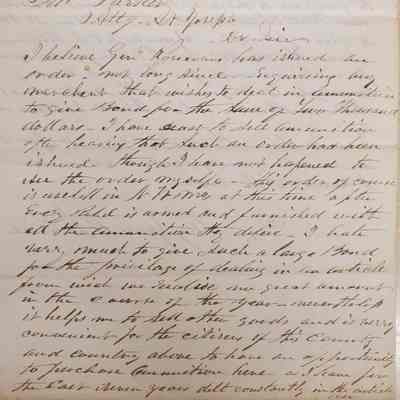 Parker
St Joseph
Dr Sir
I believe Genl Rosecrans has issued an
order not long since requiring any
merchant that wishes to deal in ammunition
to give Bond for the sum of Two Thousand
dollars I have to sell ammunition
after hearing that such an order had been
issued though I have not hapened to
see the order myself This order of course
is usefull in N W Mo at this time after
every child is armed and furnished with
all the ammunition they desire I hate
very much to give such a large Bond
for the privilege of dealing in an article
from wich we realise no great amount
in the course of the year
it helps me to sell other goods and is very
convenient for the citizens of this County
and country above to have an opportunity
to purchase ammunition here as I have for
the last seven years delt constantly in the article